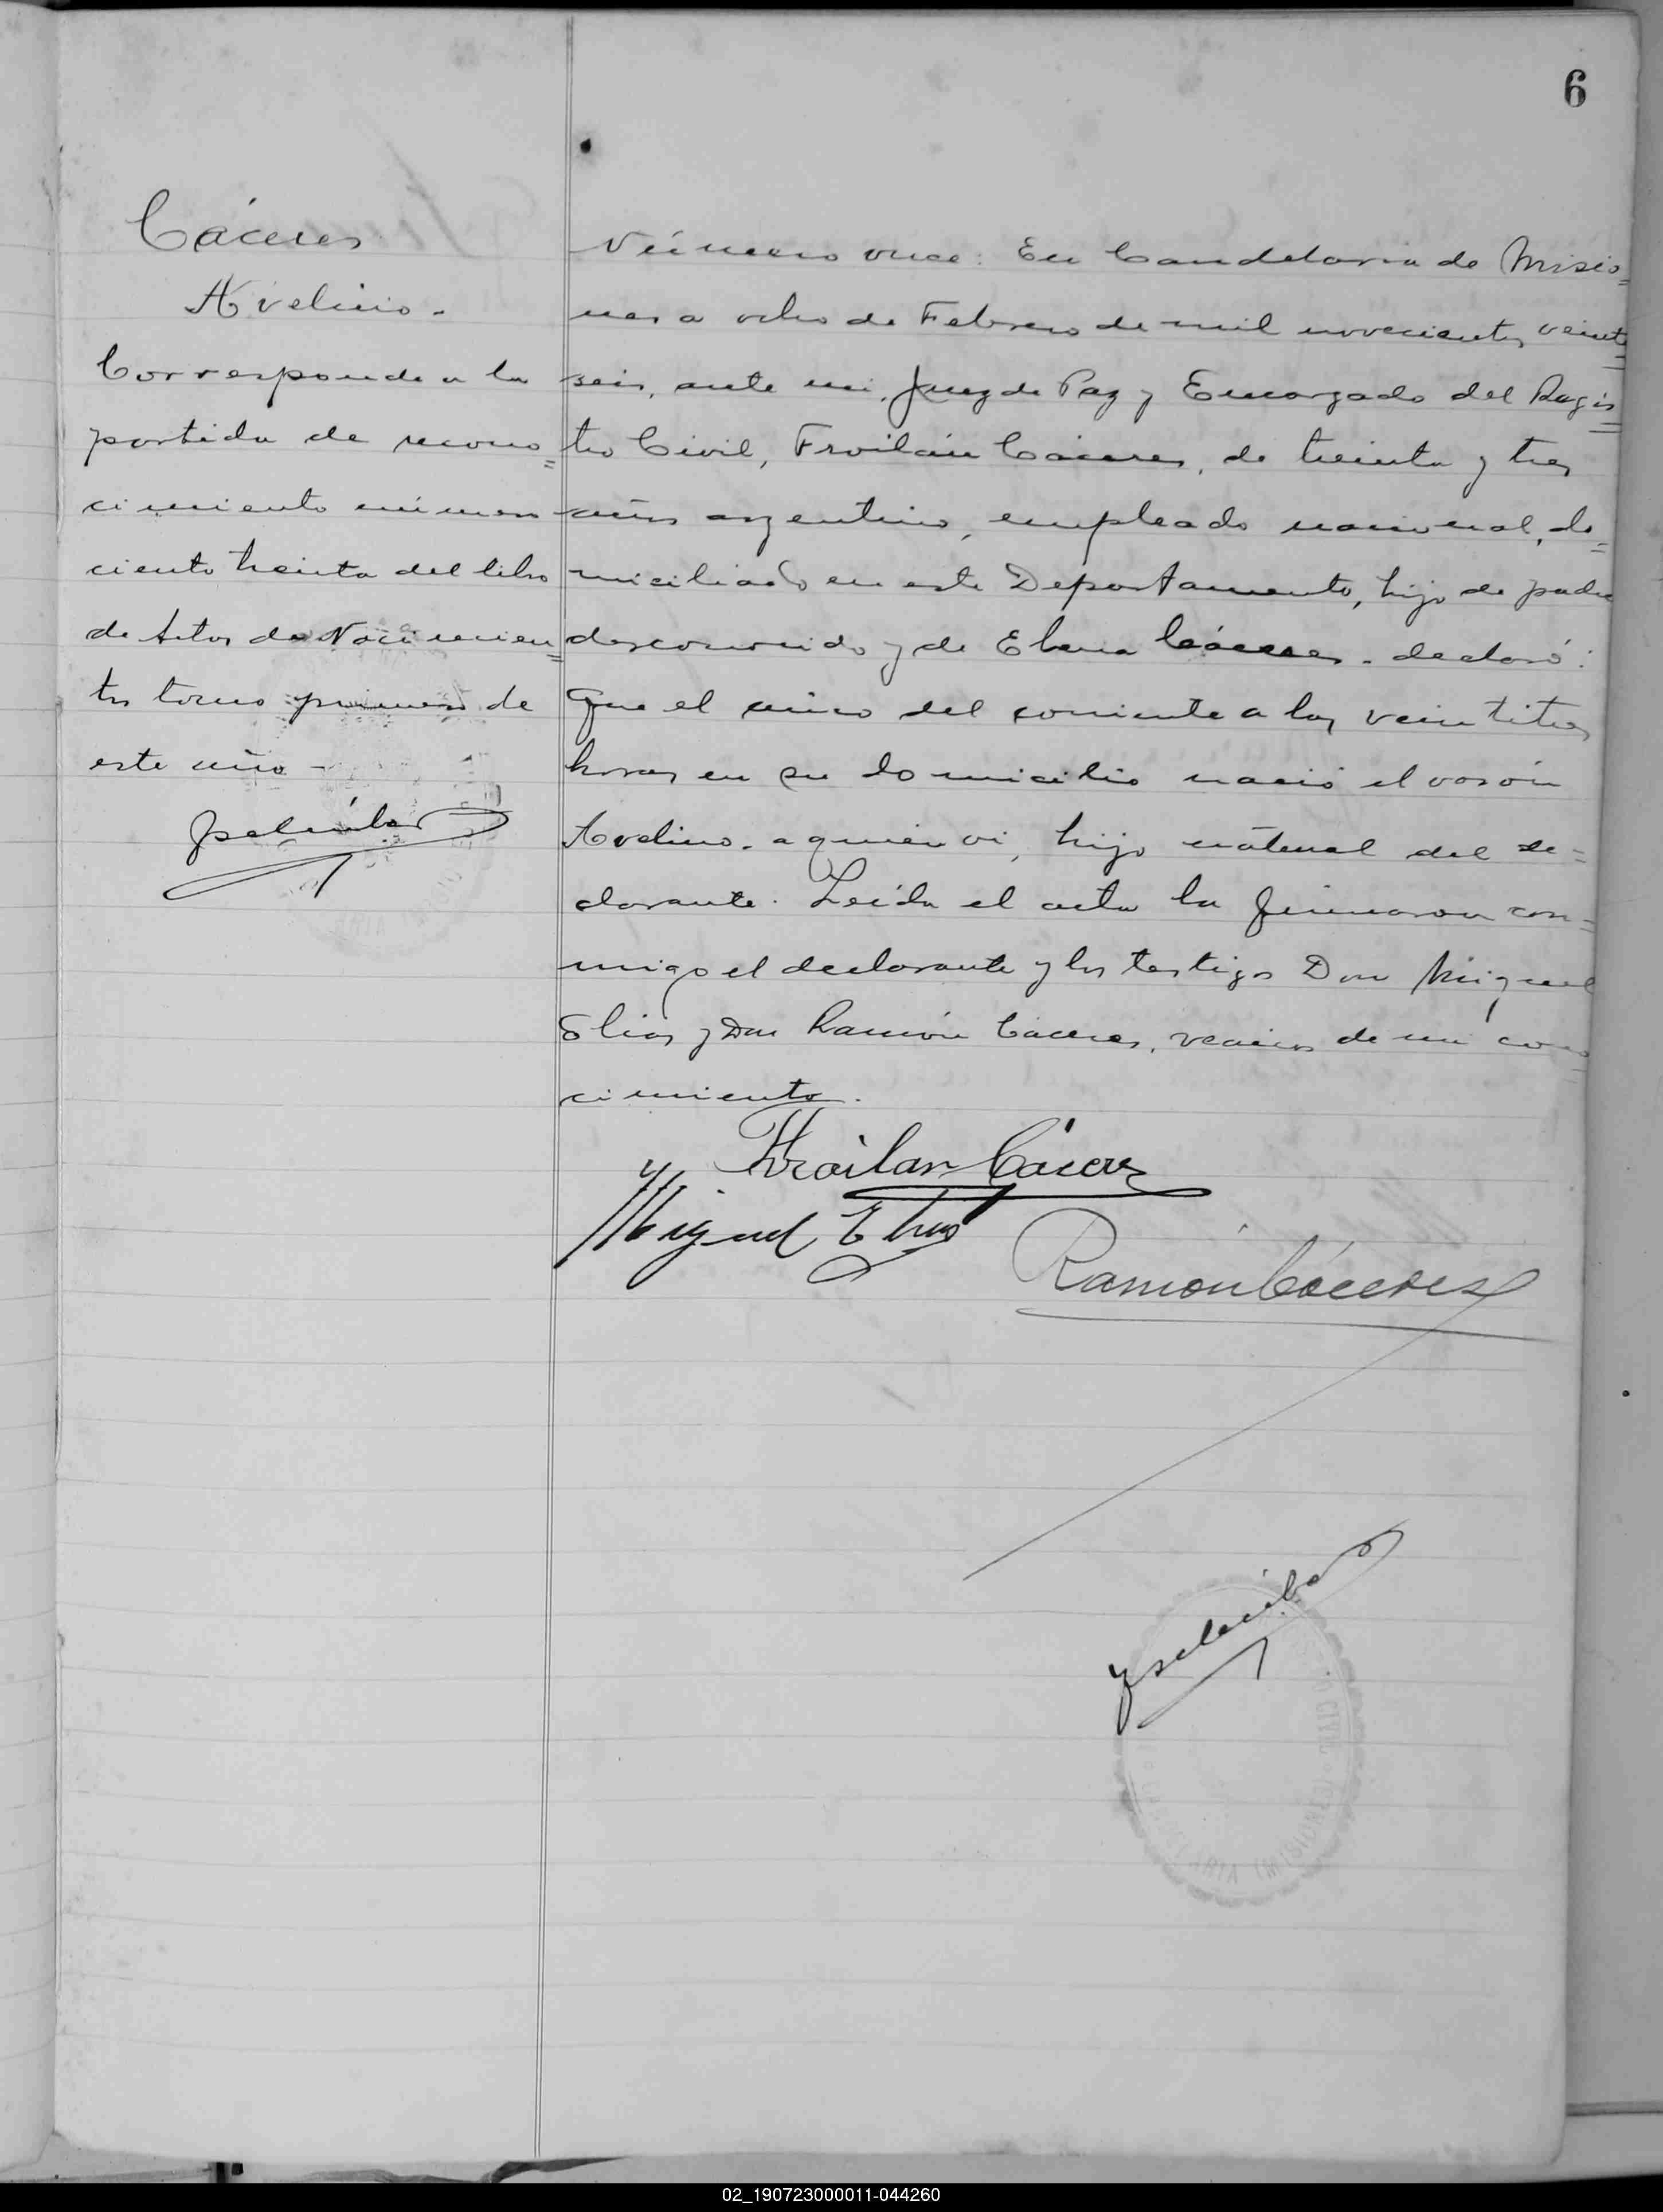 6
Cáceres
Avelino.
Corresponde a la
partida de recono=
cimiento número
ciento treinta del libro
de Actos de Nacimien=
tos tomo primero de
este año -
Número once: En Candelaria de Misio=
nes a ocho de Febrero de mil novecientos veinte=
seis, ante mi, Juez de Paz y Encargado del Regis=
tro Civil, Froilán Cáceres, de treinta y tres
años argentino, empleado nacional, do=
miciliado en este Departamento, hijo de padre
desconocido y de Elena Cáceres. declaró:
Que el cinco del corriente a las veintitres
horas en su domicilio nació el varón
Avelino. a quien vi, hijo natural del de=
clarante. Leída el acta la firmaron con=
migo el declarante y los testigos Don Miguel
Elias y Don Ramón Cáceres, vecinos de mi cono=
cimiento.
Froilan Cáceres
Miguel Elias
Ramón Cáceres
CIVIL
CANDELARIA (MISIONES)
02_190723000011-044260